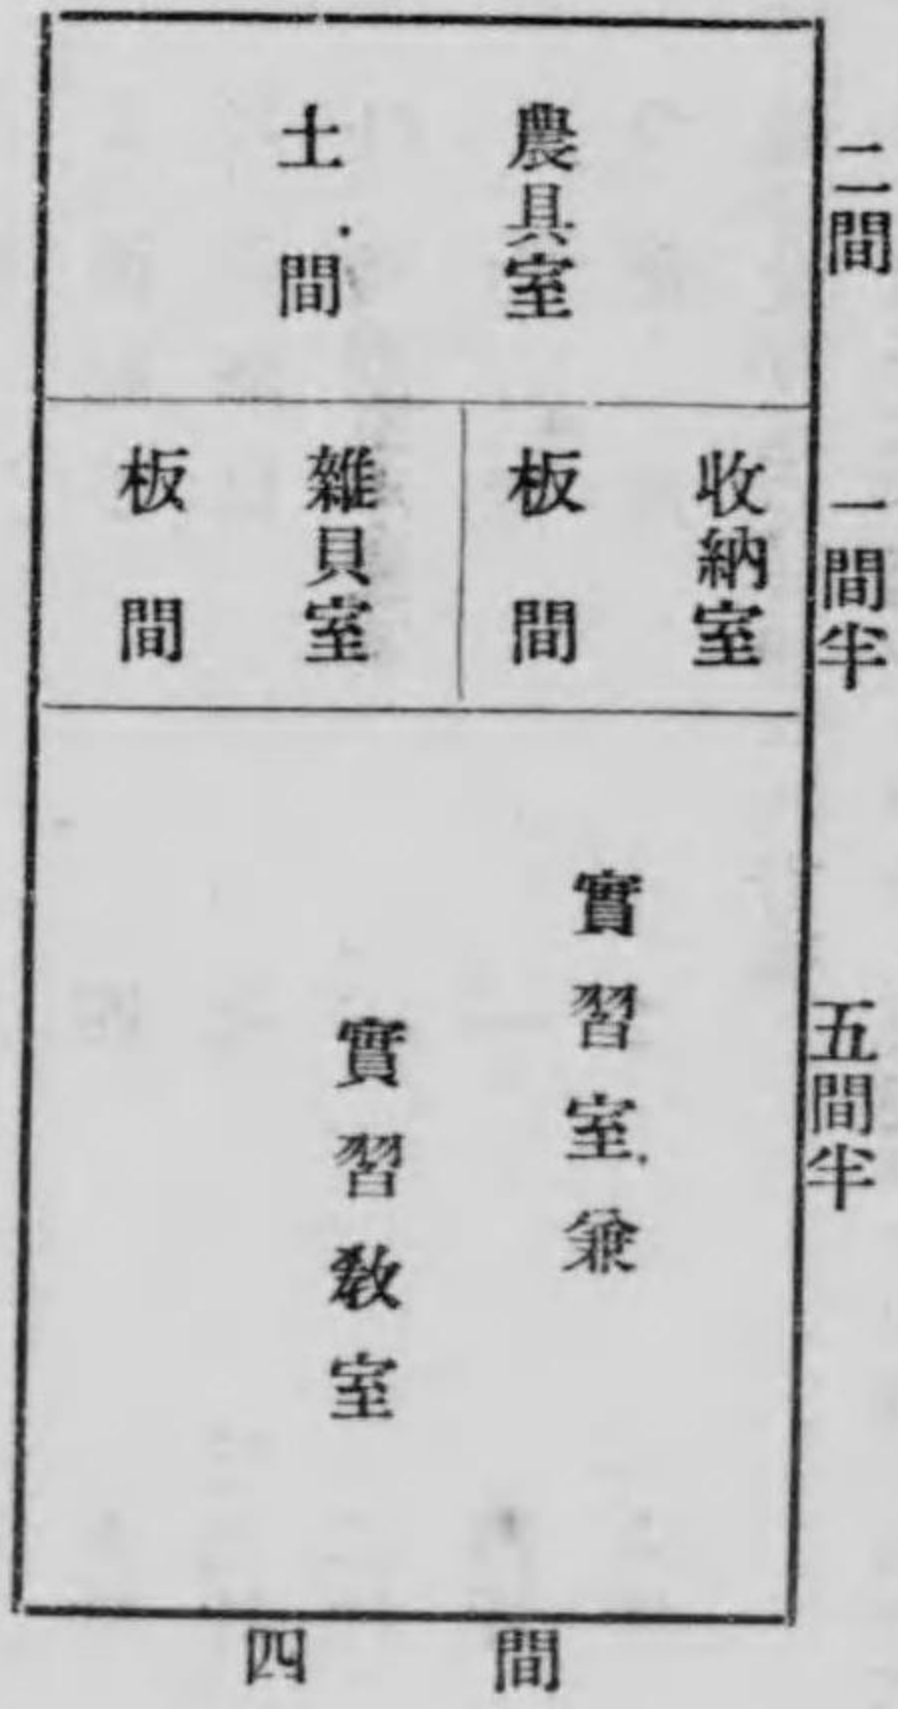 二間
農具室
土間
一間半
收納室
板間
雜貝室
板間
五間半
實習室兼
實習教室
四間